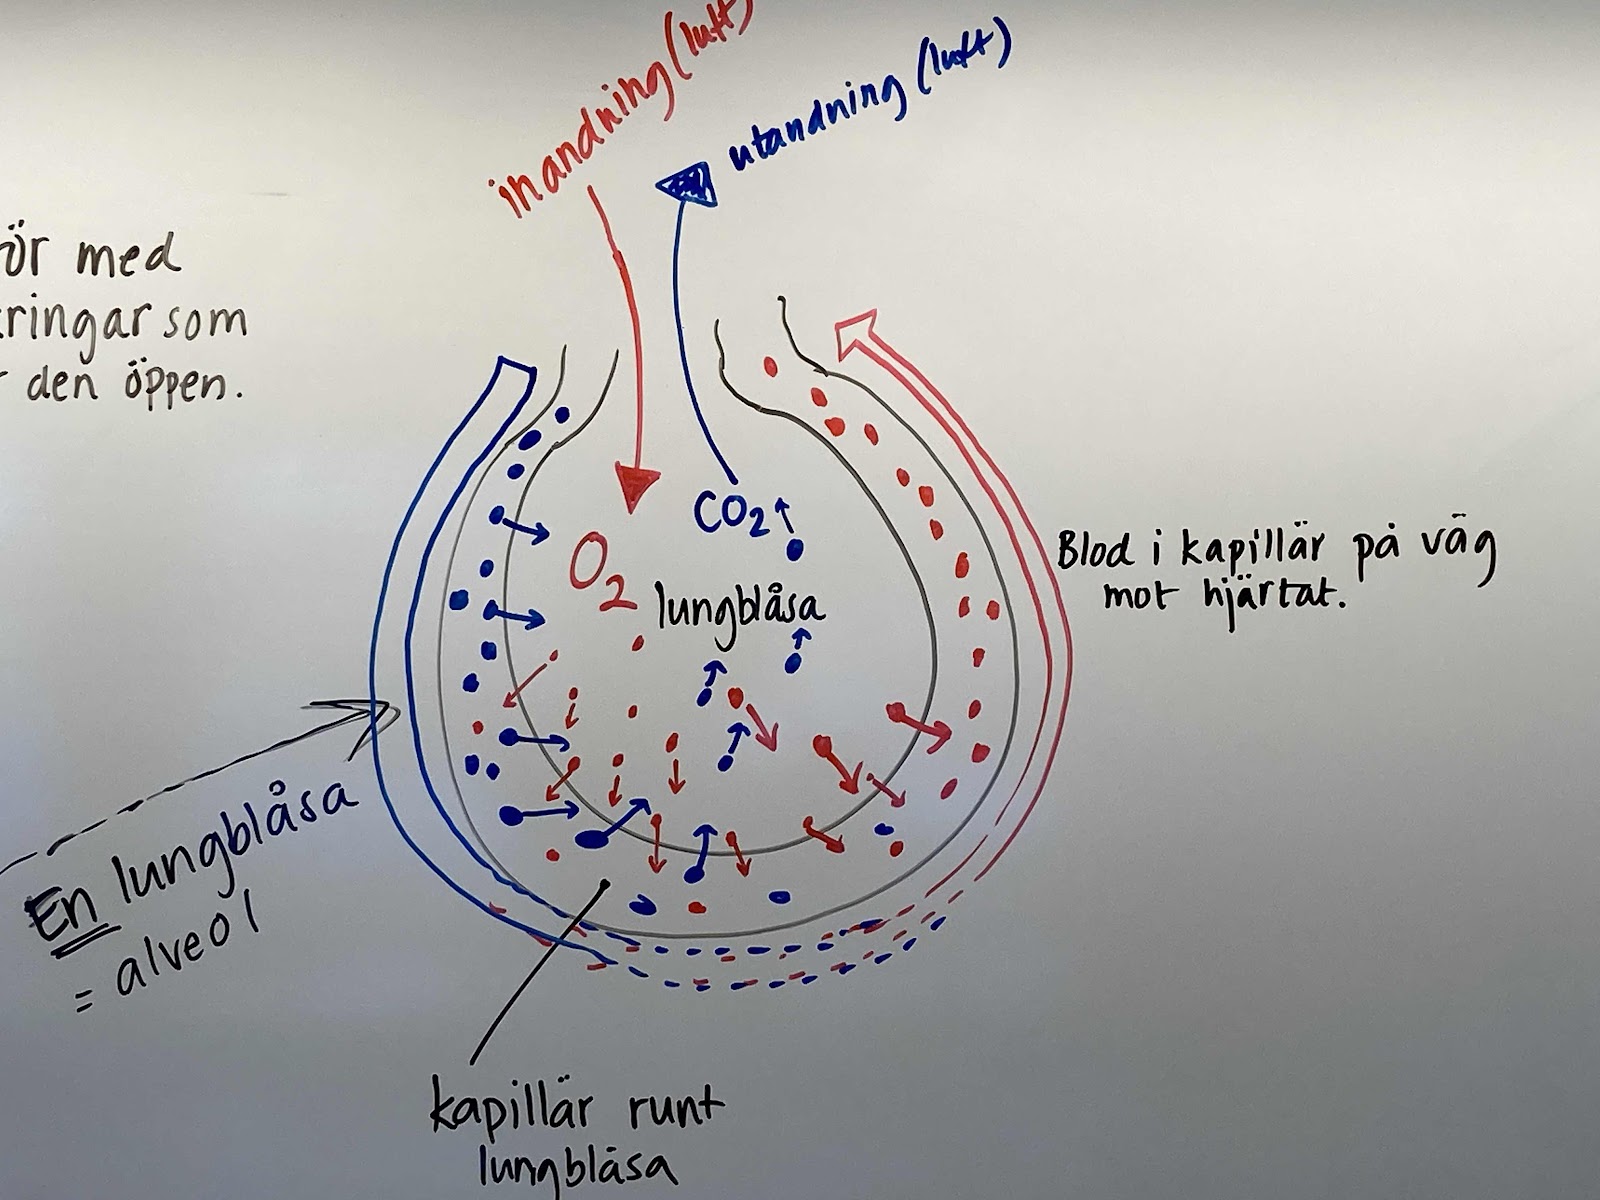 inandning (luft)
utandning (luft)
ör med
ringar som
den öppen.
CO2
O2
lungblåsa
Blod i kapillär på väg
mot hjärtat.
En lungblåsa
= alveol
kapillär runt
lungblåsa